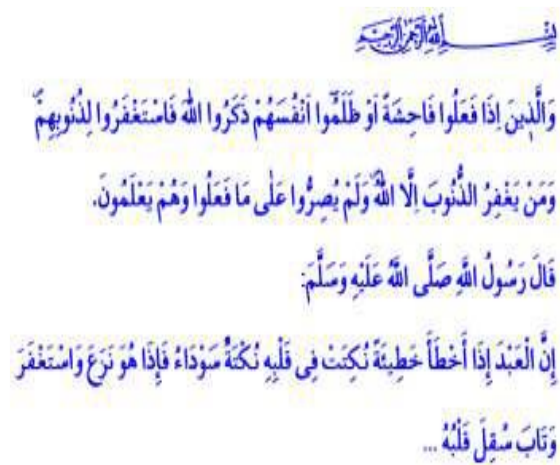 بِسْمِ اللهِ الرَّحْمٰنِ الرَّحِيمِ
وَالَّذِينَ اِذَا فَعَلُوا فَاحِشَةً اَوْ ظَلَمُٓوا اَنْفُسَهُمْ ذَكَرُوا اللهَ فَاسْتَغْفَرُوا لِذُنُوبِهِمْۖ
وَمَنْ يَغْفِرُ الذُّنُوبَ اِلَّا اللهُۖ وَلَمْ يُصِرُّوا عَلٰى مَا فَعَلُوا وَهُمْ يَعْلَمُونَ.
قَالَ رَسُولُ اللَّهِ صَلَّى اللَّهُ عَلَيْهِ وَسَلَّمَ:
إِنَّ الْعَبْدَ إِذَا أَخْطَأَ خَطِيئَةً نُكِتَتْ فِى قَلْبِهِ نُكْتَةٌ سَوْدَاءُ فَإِذَا هُوَ نَزَعَ وَاسْتَغْفَرَ
وَتَابَ سُقِلَ قَلْبُهُ ...